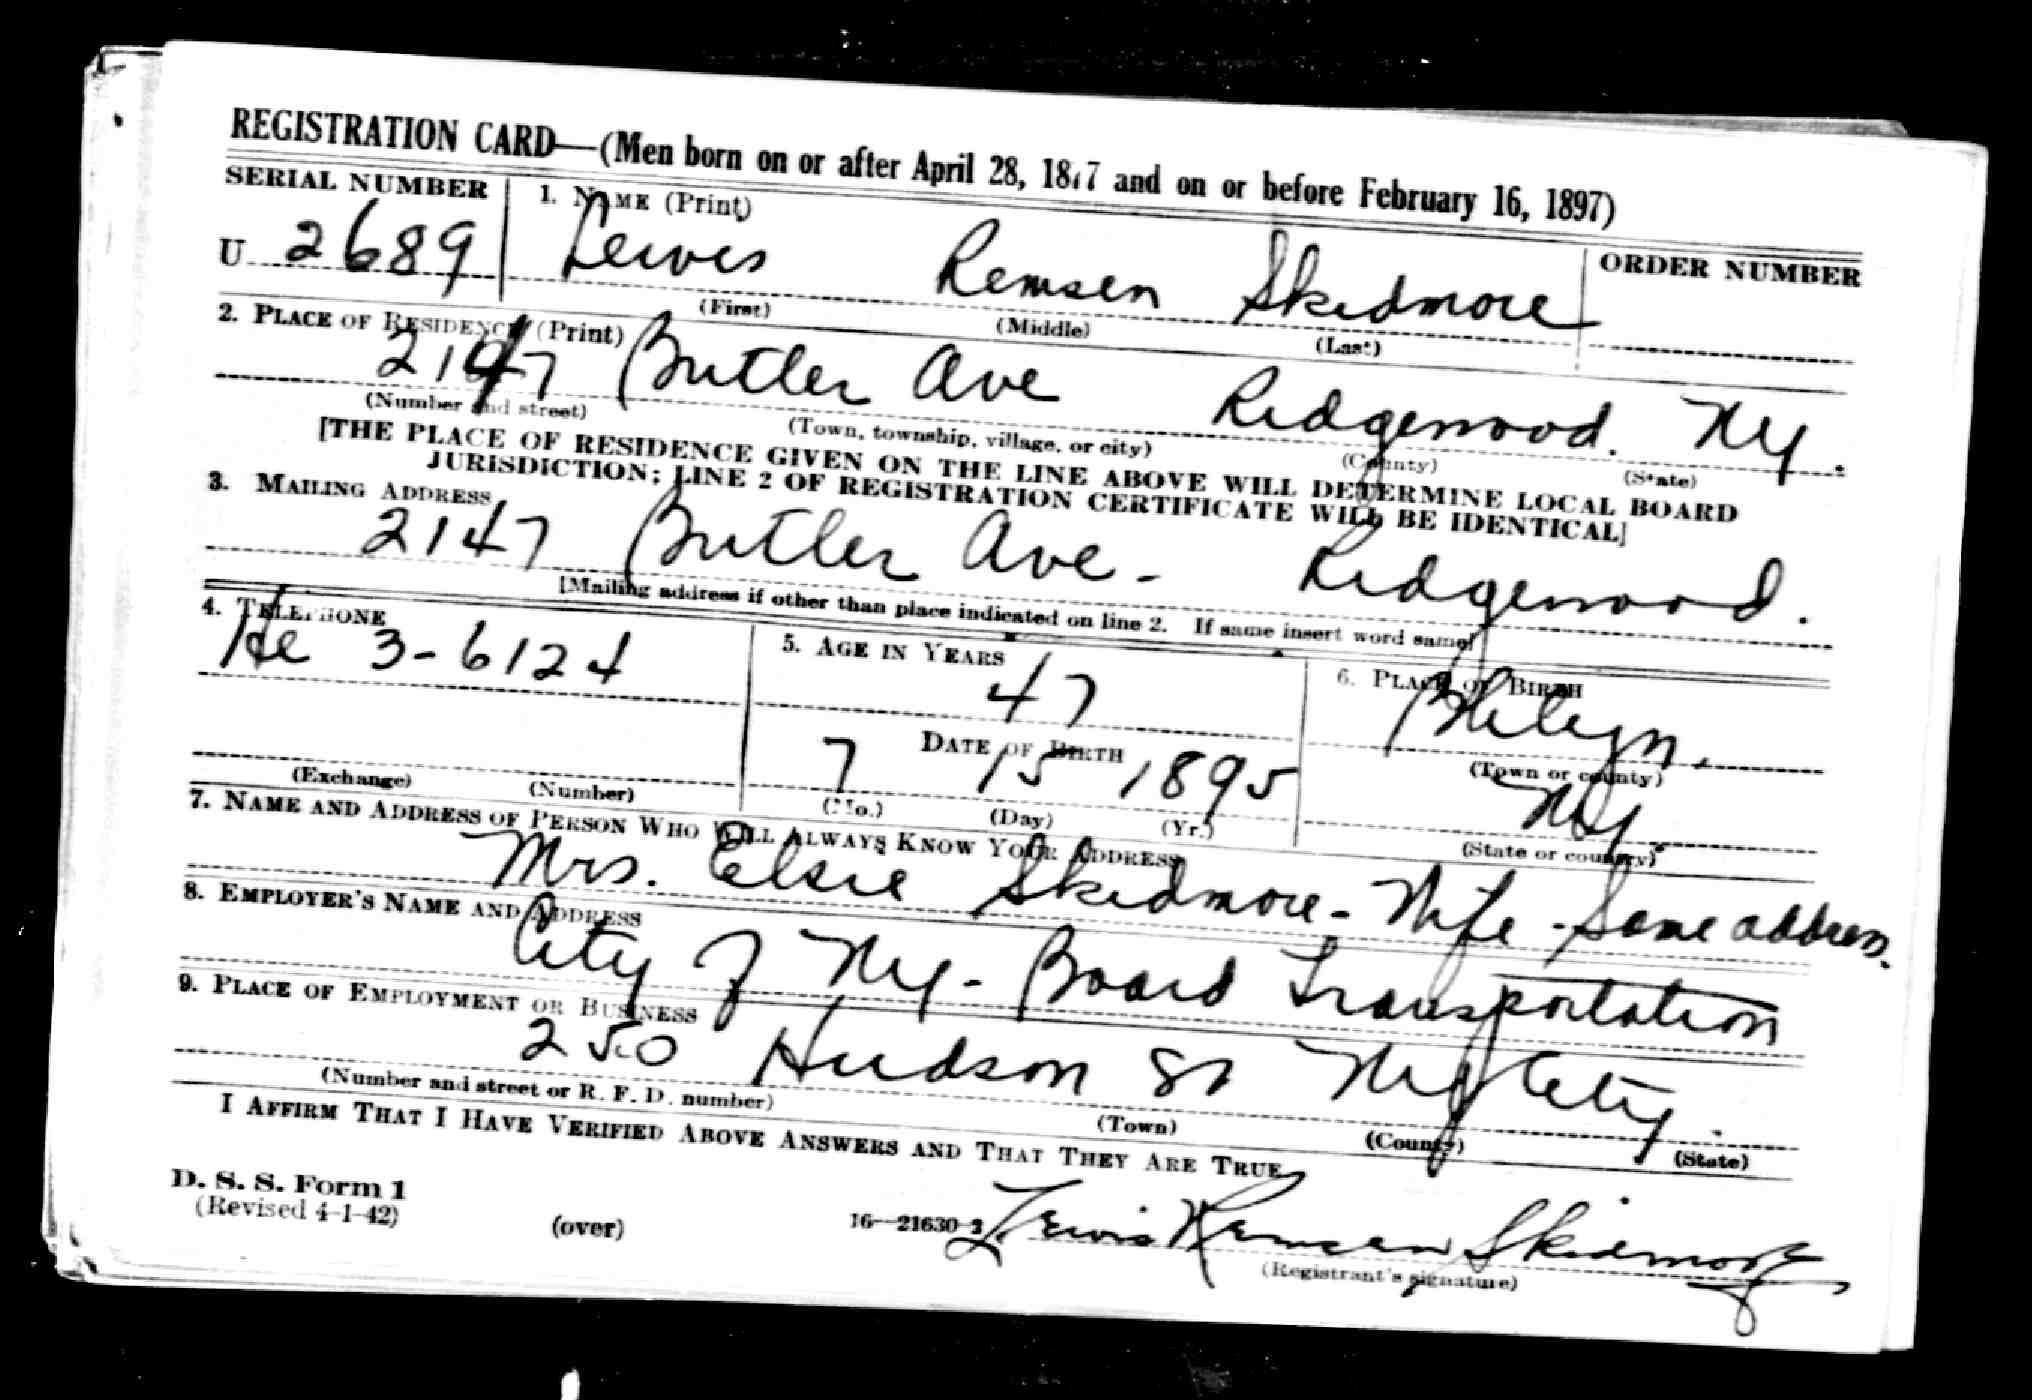 REGISTRATION CARD—(Men born on or after April 28, 1877 and on or before February 16, 1897)
SERIAL NUMBER
1. NAME (Print)
ORDER NUMBER
U 2689
Lewis Remsen Skidmore
(First) (Middle) (Last)
2. PLACE OF RESIDENCE (Print)
2147 Butler Ave Ridgewood. NY.
(Number and street) (Town, township, village, or city) (County) (State)
[THE PLACE OF RESIDENCE GIVEN ON THE LINE ABOVE WILL DETERMINE LOCAL BOARD
JURISDICTION; LINE 2 OF REGISTRATION CERTIFICATE WILL BE IDENTICAL]
3. MAILING ADDRESS
2147 Butler Ave - Ridgewood.
[Mailing address if other than place indicated on line 2. If same insert word same]
4. TELEPHONE
5. AGE IN YEARS
6. PLACE OF BIRTH
He 3-6124
47
Bklyn.
DATE OF BIRTH
(Town or county)
7 15 1895
NY.
(Exchange) (Number)
(Mo.) (Day) (Yr.)
(State or country)
7. NAME AND ADDRESS OF PERSON WHO WILL ALWAYS KNOW YOUR ADDRESS
Mrs. Elsie Skidmore - Wife - Same address.
8. EMPLOYER'S NAME AND ADDRESS
City of NY - Board Transportation
9. PLACE OF EMPLOYMENT OR BUSINESS
250 Hudson St NY City.
(Number and street or R. F. D. number) (Town) (County) (State)
I AFFIRM THAT I HAVE VERIFIED ABOVE ANSWERS AND THAT THEY ARE TRUE.
D. S. S. Form 1
(Revised 4-1-42) (over) 16—21630-2 Lewis Remsen Skidmore
(Registrant's signature)